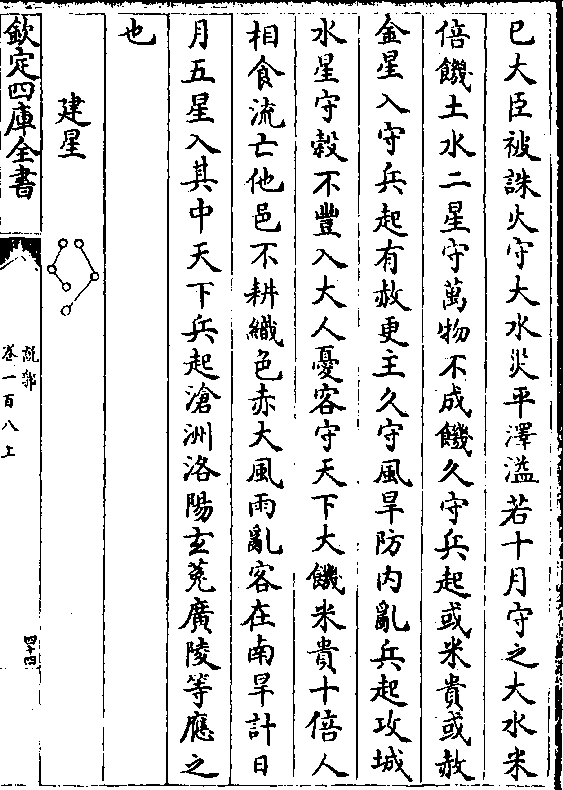 已大臣被誅火守大水災平澤溢若十月守之大水米
倍饑土水二星守萬物不成饑久守兵起或米貴或赦
金星入守兵起有赦更主久守風旱防内亂兵起攻城
水星守穀不豐入大人憂客守天下大饑米貴十倍人
相食流亡他邑不耕織色赤大風雨亂客在南旱計日
月五星入其中天下兵起滄洲洛陽玄菟廣陵等應之
也
建星
欽定四庫全書
說郛
卷一百八上
四十四